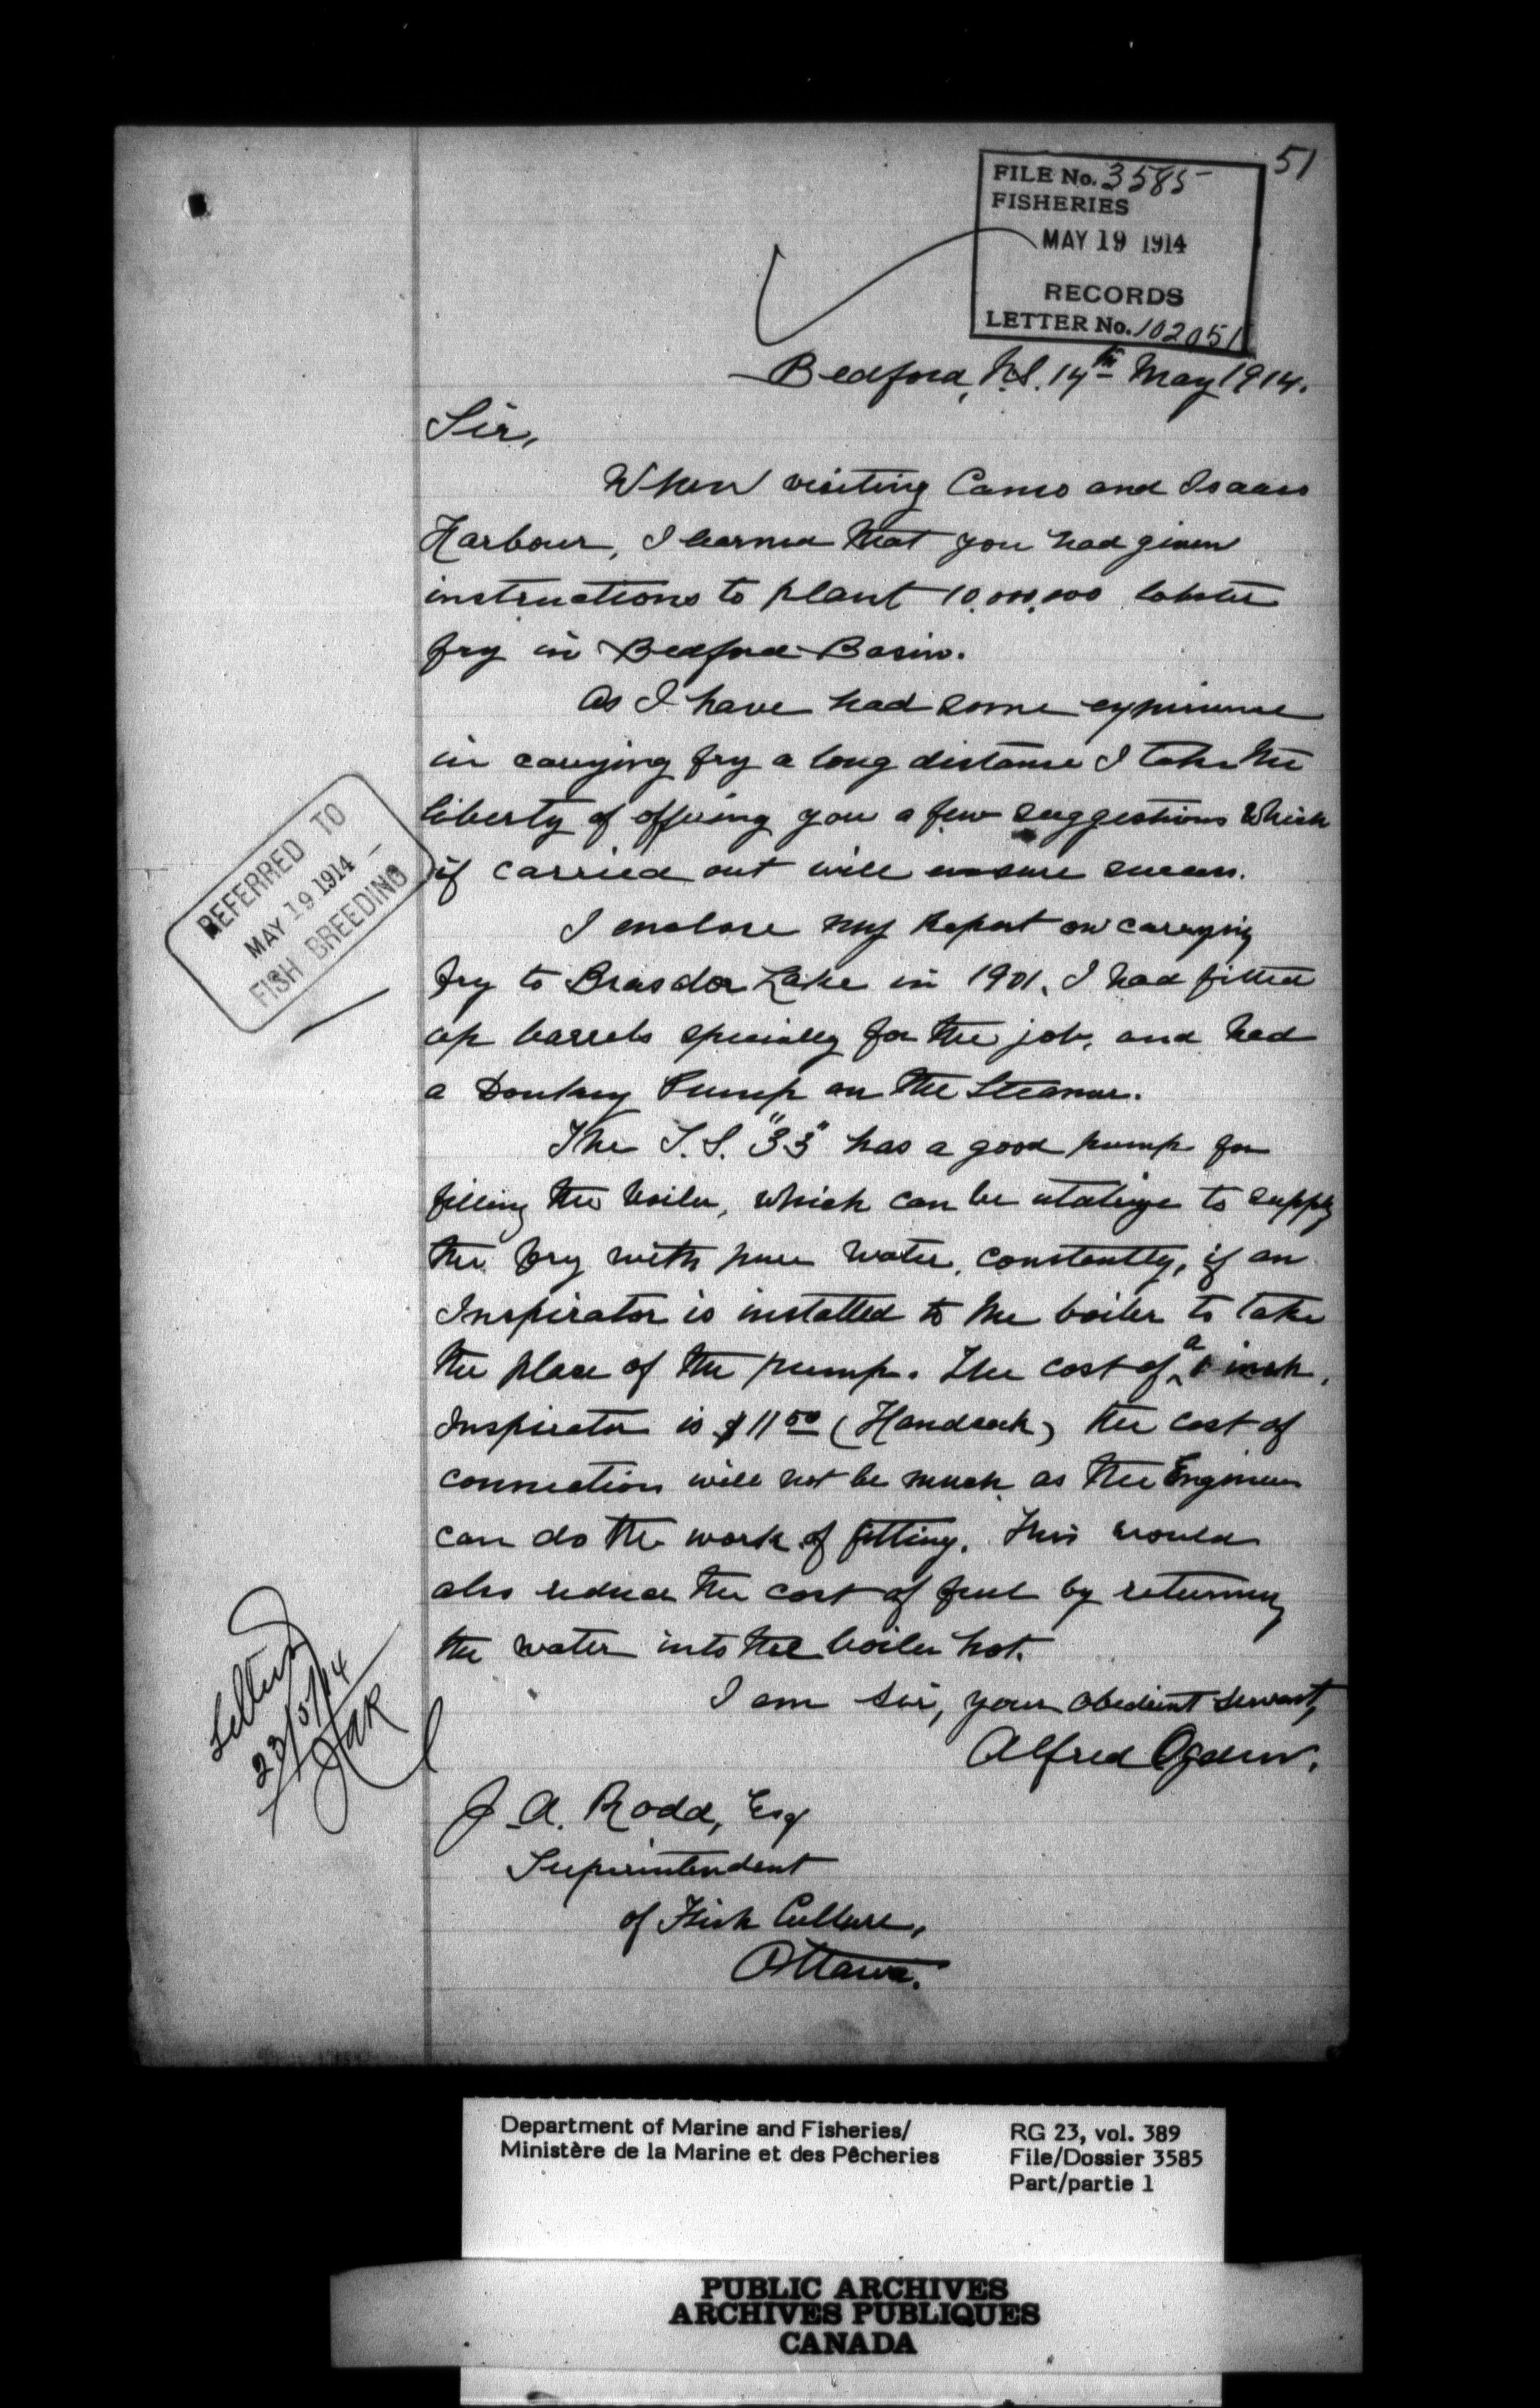 51
FILE No. 3585
FISHERIES
MAY 19 1914
RECORDS
LETTER No. 102051
Bedford, N.S. 14th May 1914.
Sir,
When visiting Canso and Isaacs
Harbour, I learned that you had given
instructions to plant 10,000,000 lobster
fry in Bedford Basin.
As I have had some experience
in carrying fry a long distance I take the
liberty of offering you a few suggestions which
if carried out will ensure success.
I enclose my Report on carrying
fry to Brasdor Lake in 1901. I had fitted
up barrels specially for the job, and had
a Donkey Pump on the Steamer.
The T.S. "33" has a good pump for
filling the boiler, which can be to supply
the fry with pure water, constantly, if an
Inspirator is installed to the boiler to take
the place of the pump. The cost of a 1 inch
Inspirator is $11 50 (Handcock) the cost of
connection will not be much as the Engineer
can do the work of fitting. This would
also reduce the cost of fuel by returning
the water into the boiler hot.
I am Sir, your obedient servant,
Alfred Ogden.
J. A. Rodd, Esq
Superintendent
of Fish Culture,
Ottawa.
REFERRED TO
MAY 19 1914
FISH BREEDING
23/5/14
Department of Marine and Fisheries/
Ministère de la Marine et des Pêcheries
RG 23, vol. 389
File/Dossier 3585
Part/partie 1
PUBLIC ARCHIVES
ARCHIVES PUBLIQUES
CANADA